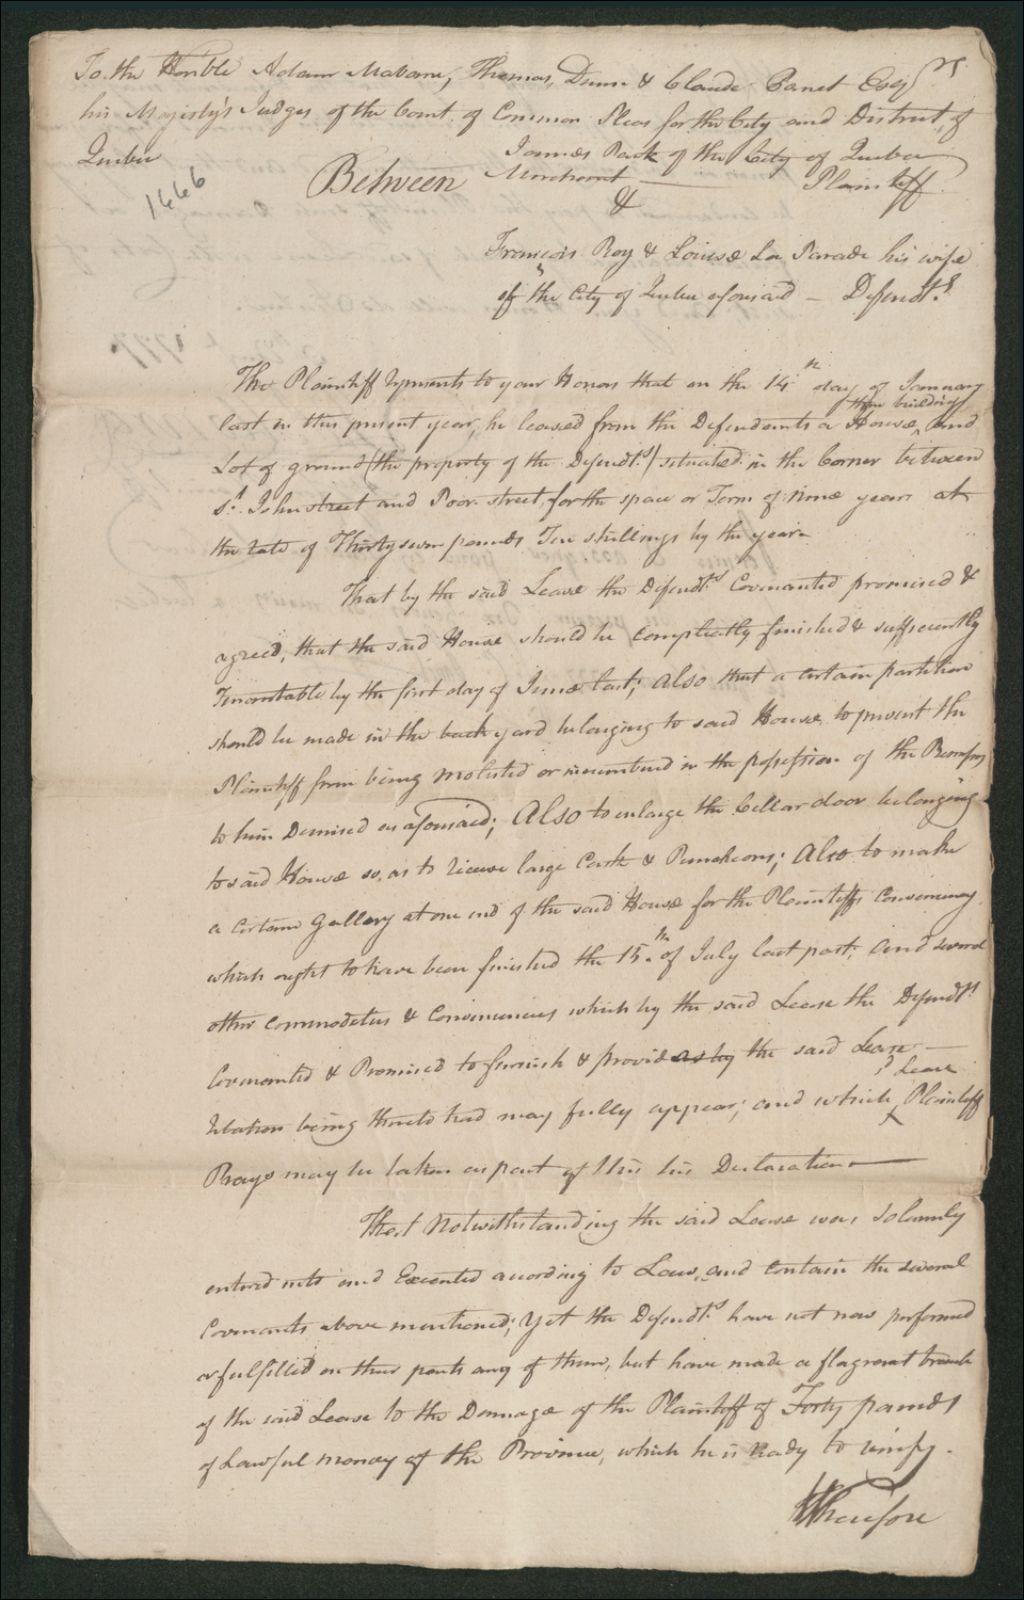 To the Honble Adam Mabane, Thomas Dunn & Claude Panet Esqrs
his Majesty's Judges of the Court of Common Pleas for the City and District of
Quebec
James Park of the City of Quebec
1666
Between Merchant — Plaintiff
&
François Roy & Louise La Parade his wife
of the City of Quebec aforesaid — Defendts
The Plaintiff represents to your Honors that on the 14th day of January
last in this present year, he leased from the Defendants a House, then building and
Lot of ground (the property of the Defendts) situated in the Corner between
St. John street and Poor street, for the space or Term of Nine years at
the rate of Thirty seven pounds Ten shillings by the year.
That by the said Lease the Defendts Covenanted promised &
agreed, that the said House should be compleatly finished & sufficiently
Tenantable by the first day of June last; also that a certain partition
should be made in the back yard belonging to said House, to prevent the
Plaintiff from being molested or incumbered in the possession of the Premises
to him Demised as aforsaid; Also to enlarge the Cellar door belonging
to said House so as to receive large Cask & Puncheons; Also to make
a Certain Gallery at one end of the said House for the Plaintiffs Conveniency
which ought to have been finished the 15th of July last past; and several
other commodities & Conveniencies which by the said Lease the Defendts
Covenanted & Promised to furnish & provide as by the said Lease —
relation being thereto had may fully appear; and which sd Lease Plaintiff
Prays may be taken as part of this his Declaration —
That Notwithstanding the said Lease was solemnly
entered into and Executed according to Law, and contain the several
Covenants above mentioned; Yet the Defendts have not now performed
or fulfilled on their parts any of them, but have made a flagrant breach
of the said Lease to the Damage of the Plaintiff of Forty pounds
of Lawful money of the Province, which he is Ready to verify.
Wherefore